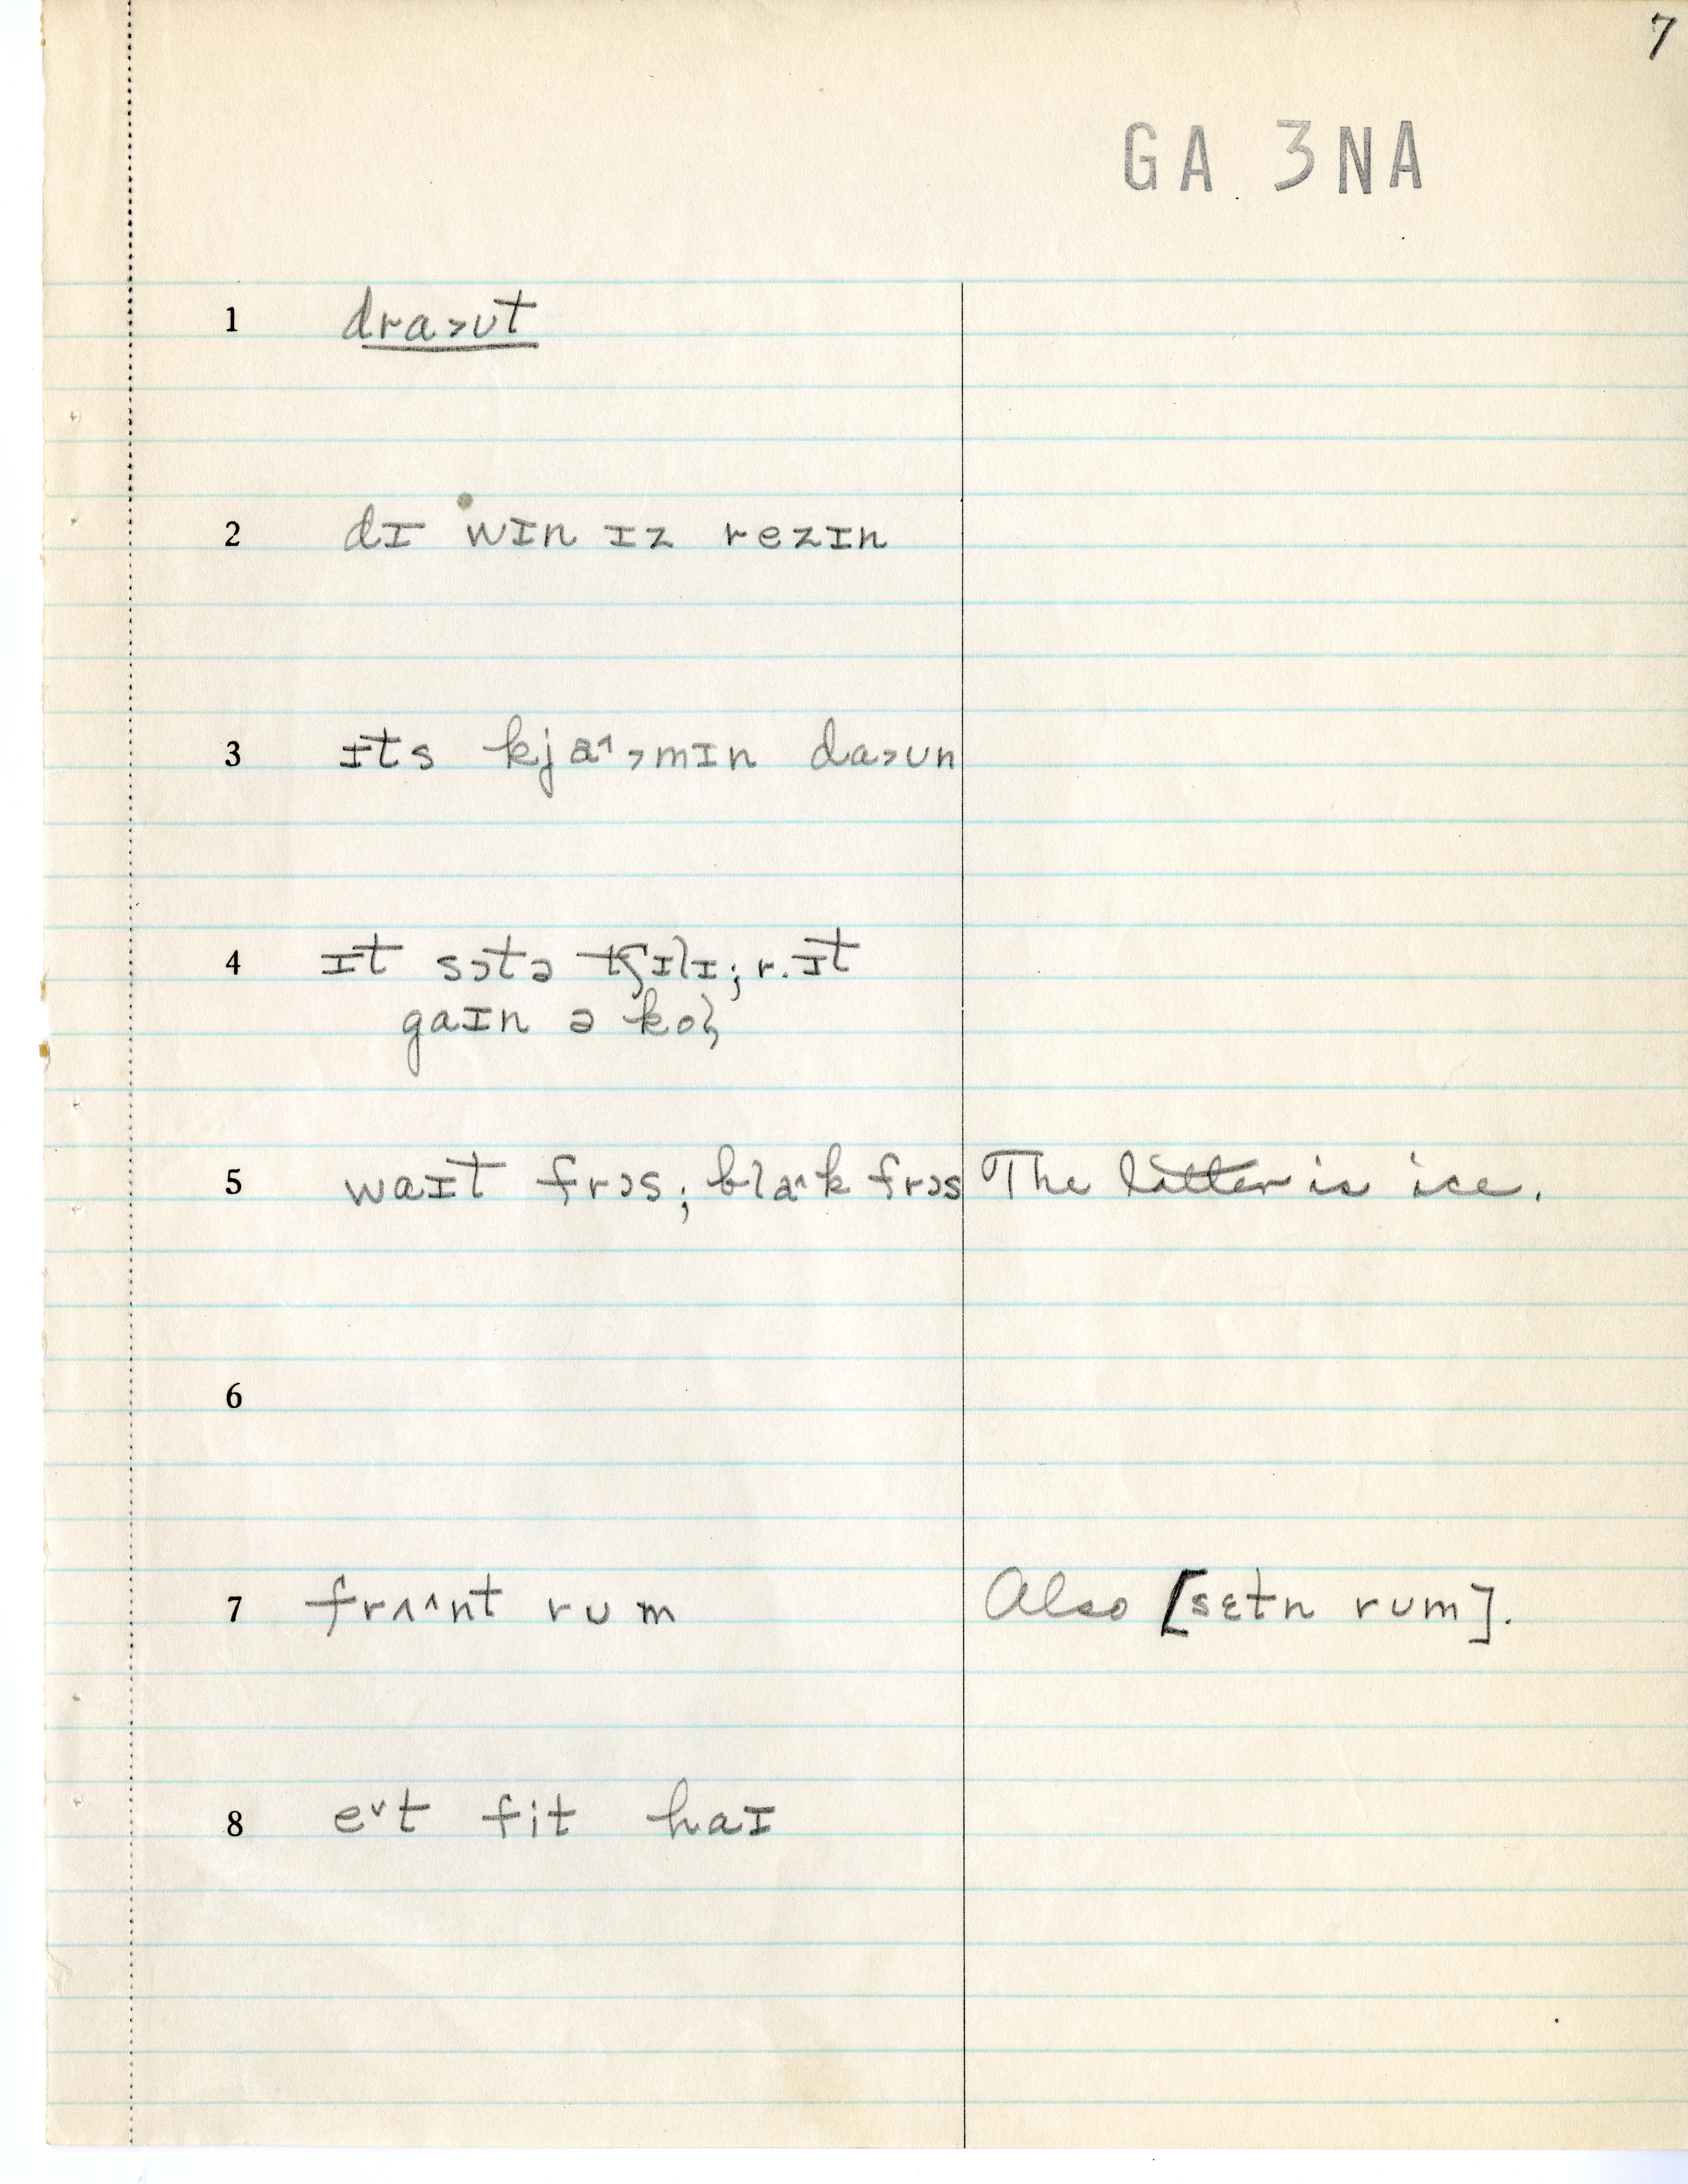 7
GA 3NA
1 dra˃ʊt
2 dɪ wɪn ɪz rezɪn
3 ɪts kja˄˃mɪn da˃ʊn
4 ɪt sɔtə tʃɪlɪ; r. ɪt
gaɪn ə kol
5 waɪt frɔs; bla˄k frɔs The latter is ice.
6
7 frʌ˄nt rum Also [sɛtn rum].
8 e˅t fit haɪ